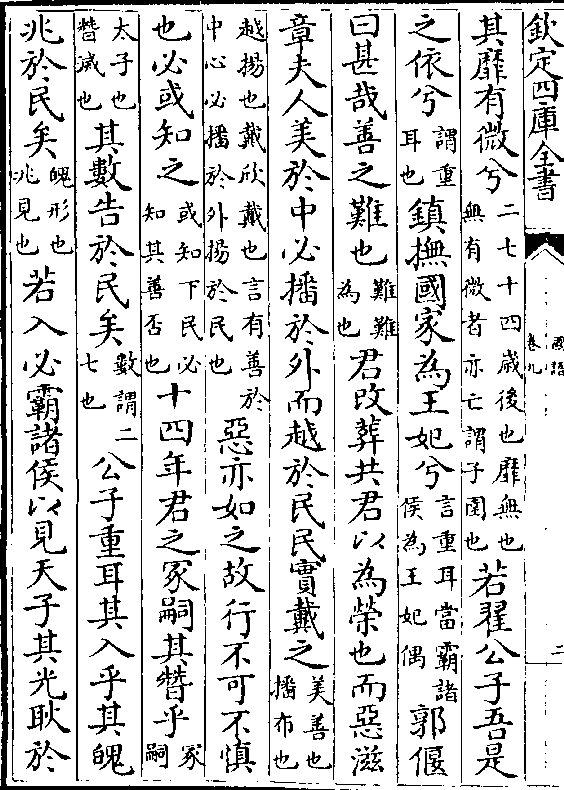 欽定四庫全書 國語 卷九 二
其靡有微兮二七十四歲後也靡無也無有微者亦亡謂子圉也若翟公子吾是
之依兮謂重耳也鎮撫國家為王妃兮言重耳當霸諸侯為王妃偶郭偃
曰甚哉善之難也難難為也君改葬共君以為榮也而惡滋
章夫人美於中必播於外而越於民民實戴之美善也播布也
越揚也戴欣戴也言有善於中心必播於外揚於民也惡亦如之故行不可不慎
也必或知之或知下民必知其善否也十四年君之冢嗣其朁乎冢嗣
太子也朁滅也其數告於民矣數謂二七也公子重耳其入乎其魄
兆於民矣魄形也兆見也若入必霸諸侯以見天子其光耿於